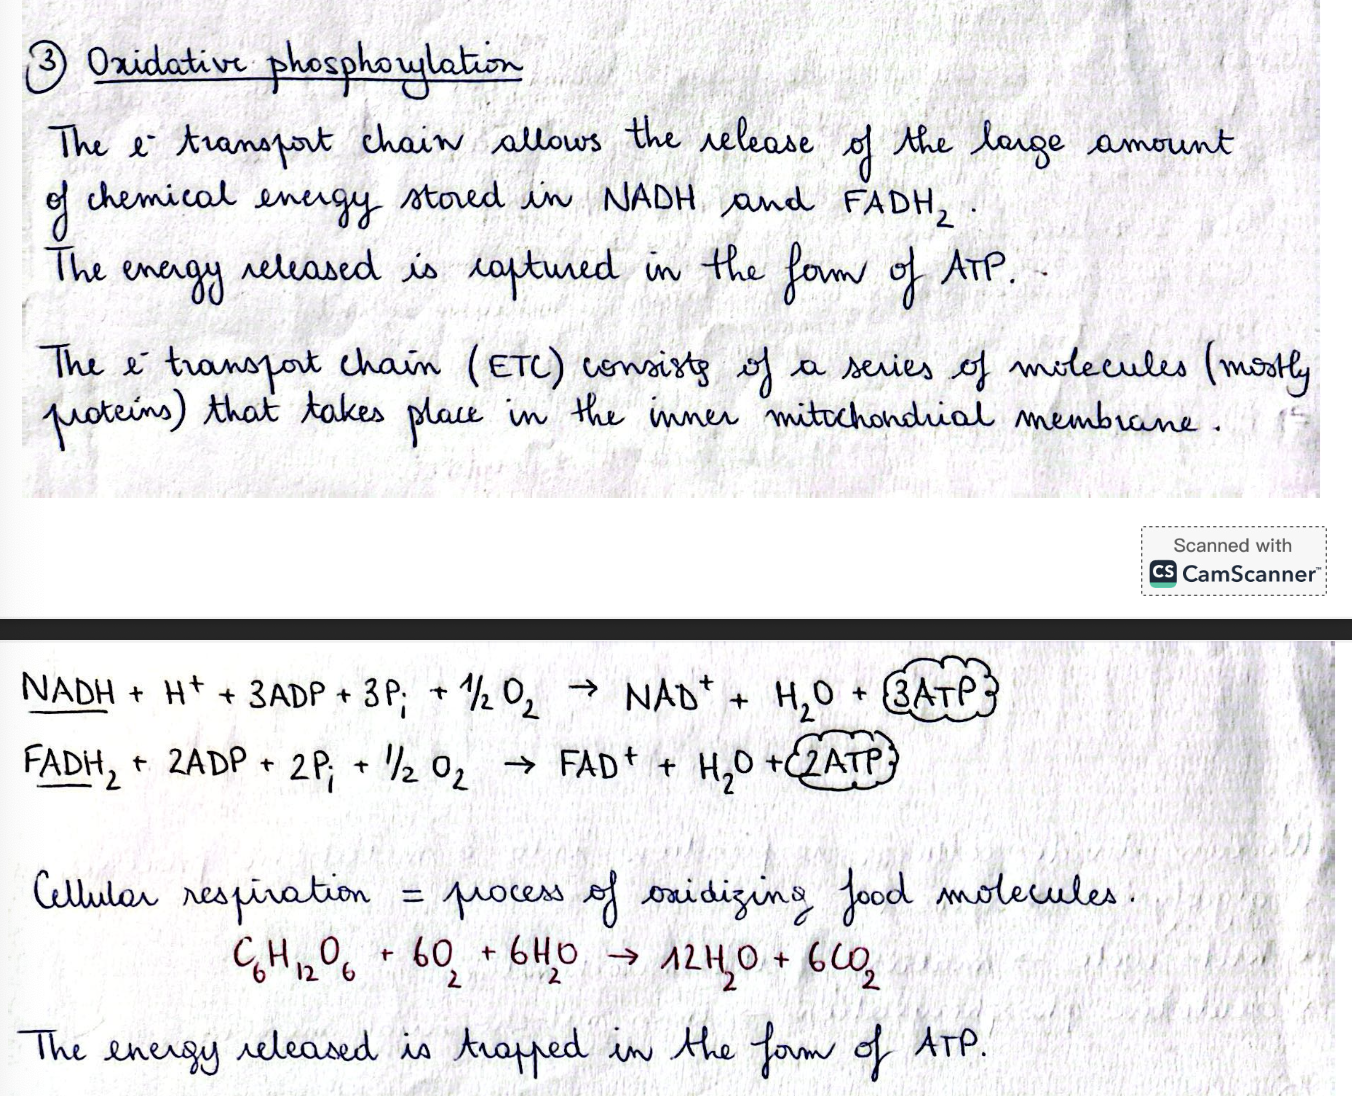 ③ Oxidative phosphorylation
The e⁻ transport chain allows the release of the large amount
of chemical energy stored in NADH and FADH₂.
The energy released is captured in the form of ATP.
The e⁻ transport chain (ETC) consists of a series of molecules (mostly
proteins) that takes place in the inner mitochondrial membrane.
Scanned with
CS CamScanner™
NADH + H⁺ + 3ADP + 3Pᵢ + 1/2 O₂ → NAD⁺ + H₂O + 3ATP
FADH₂ + 2ADP + 2Pᵢ + 1/2 O₂ → FAD⁺ + H₂O + 2ATP
Cellular respiration = process of oxidizing food molecules.
C₆H₁₂O₆ + 6O₂ + 6H₂O → 12H₂O + 6CO₂
The energy released is trapped in the form of ATP.